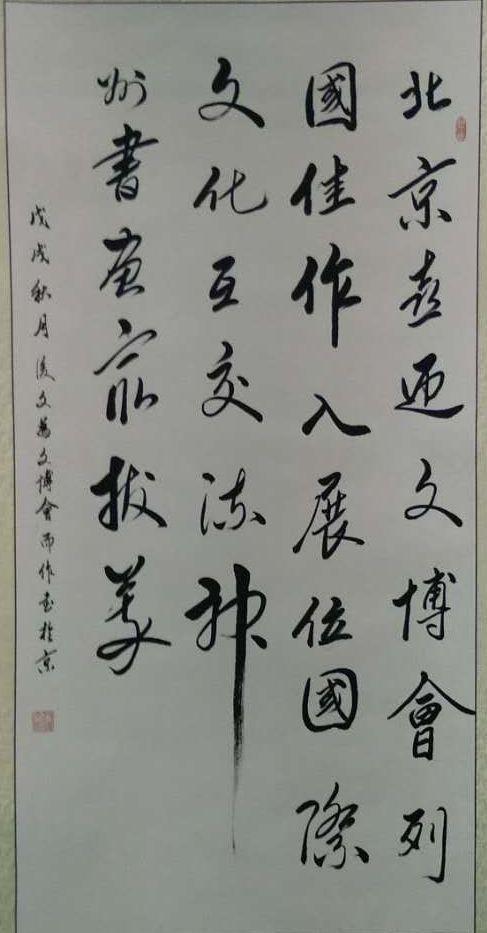 北京喜迎文博會列
國佳作入展位國際
文化互交流神
州書画最拔美
戊戌秋月俊文為文博會而作書於京